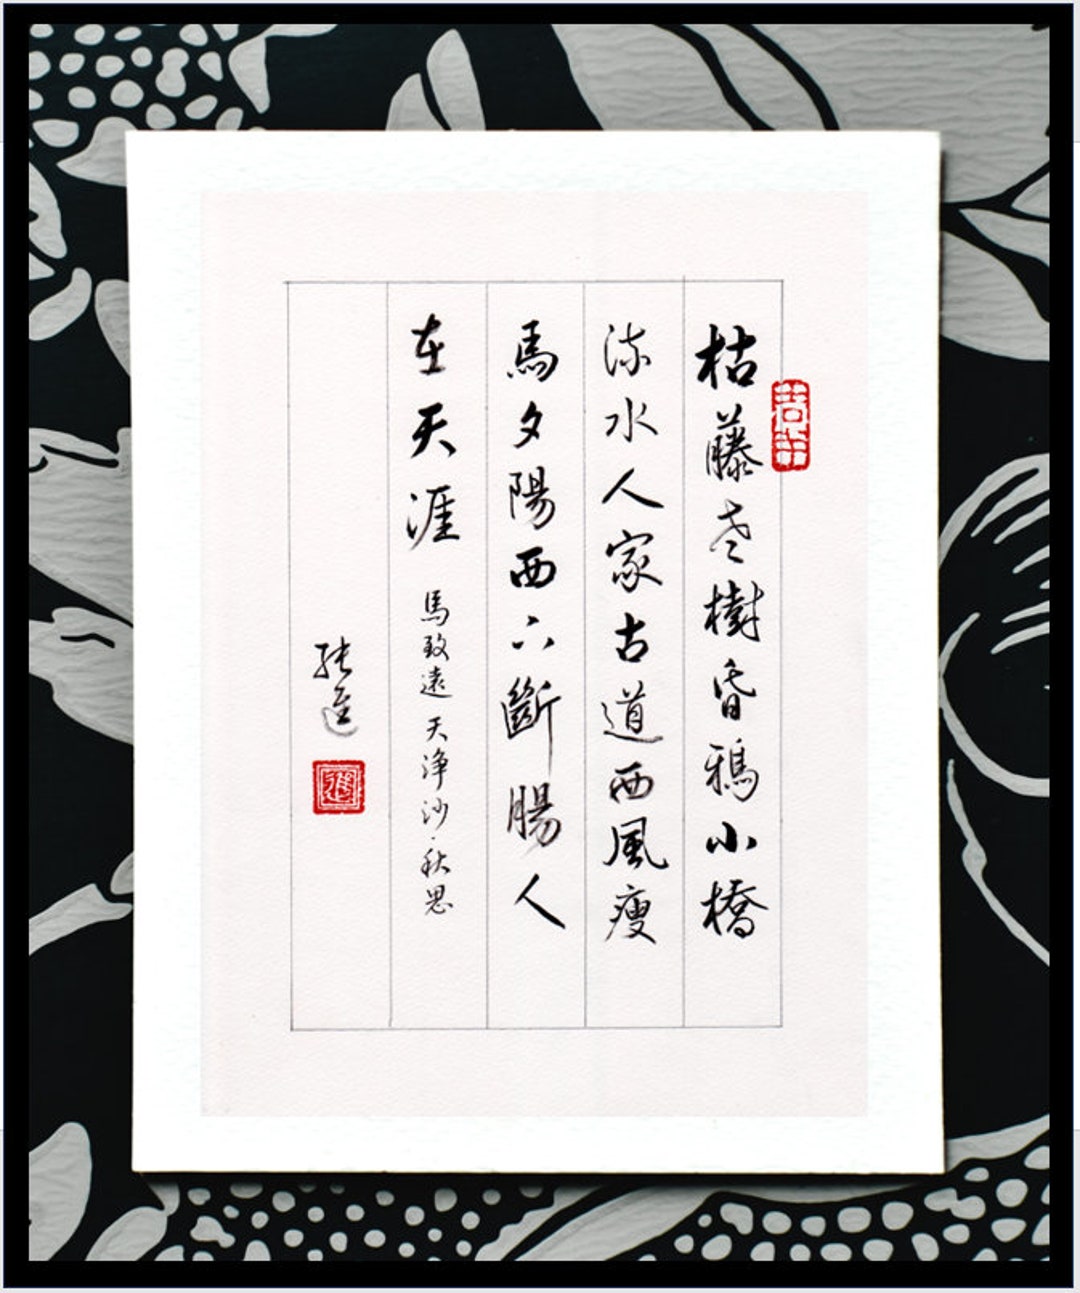 枯藤老樹昏鴉小橋
流水人家古道西風瘦
馬夕陽西下斷腸人
在天涯 馬致遠 天淨沙·秋思
張進